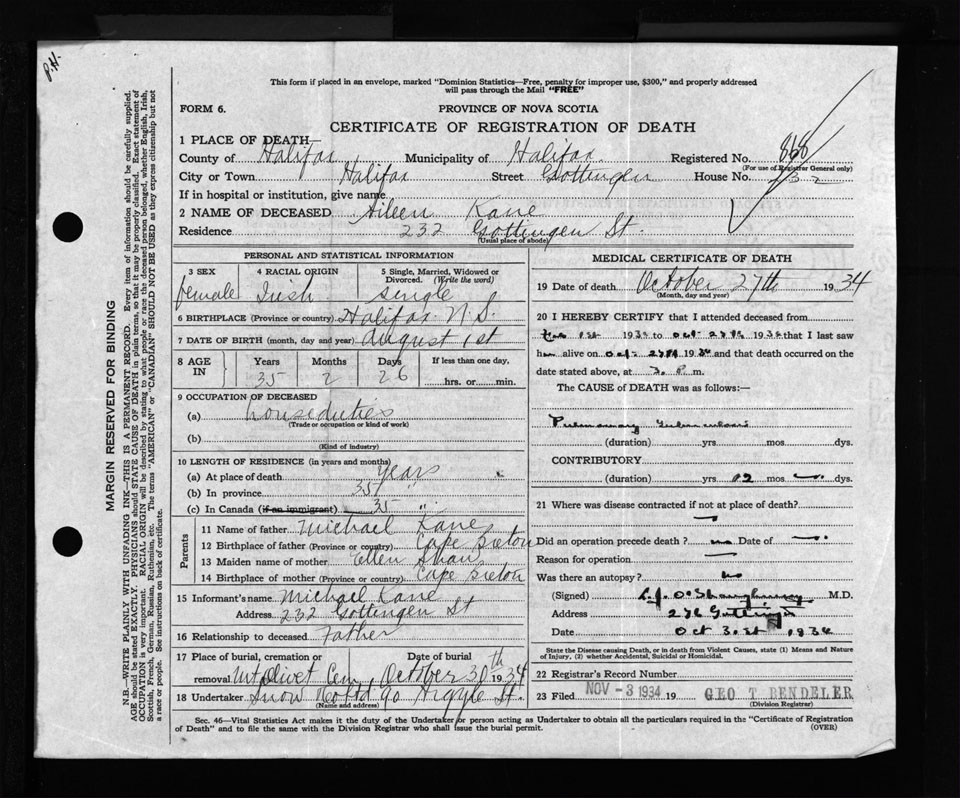 P.H.
This form if placed in an envelope, marked "Dominion Statistics—Free, penalty for improper use, $300," and properly addressed
will pass through the Mail "FREE"
FORM 6.
PROVINCE OF NOVA SCOTIA
CERTIFICATE OF REGISTRATION OF DEATH
1 PLACE OF DEATH—
County of Halifax Municipality of Halifax. Registered No. 868
(For use of Registrar General only)
City or Town Halifax Street Gottingen House No. 232
If in hospital or institution, give name
2 NAME OF DECEASED Aileen Kane
Residence 232 Gottingen St.
(Usual place of abode)
PERSONAL AND STATISTICAL INFORMATION
3 SEX 4 RACIAL ORIGIN 5 Single, Married, Widowed or
Divorced. (Write the word)
female Irish single
6 BIRTHPLACE (Province or country) Halifax N.S.
7 DATE OF BIRTH (month, day and year) August 1st
8 AGE IN Years Months Days If less than one day,
35 2 26 hrs. or min.
9 OCCUPATION OF DECEASED
(a) houseduties
(Trade or occupation or kind of work)
(b)
(Kind of industry)
10 LENGTH OF RESIDENCE (in years and months)
(a) At place of death years
(b) In province 35 "
(c) In Canada (if an immigrant) 35 "
Parents
11 Name of father Michael Kane
12 Birthplace of father (Province or country) Cape Breton
13 Maiden name of mother Ellen Shaw
14 Birthplace of mother (Province or country) Cape Breton
15 Informant's name Michael Kane
Address 232 Gottingen St
16 Relationship to deceased Father
17 Place of burial, cremation or Date of burial
removal Mt Olivet Cem. October 30th 1934
18 Undertaker Snow Co Ltd 90 Argyle St.
(Name and address)
MEDICAL CERTIFICATE OF DEATH
19 Date of death October 27th 1934
(Month, day and year)
20 I HEREBY CERTIFY that I attended deceased from
1st 1934 to Oct 27th 1934 that I last saw
h alive on Oct 27th 1934 and that death occurred on the
date stated above, at 3. P. m.
The CAUSE OF DEATH was as follows:—
Pulmonary Tuberculosis
(duration) yrs. mos. dys.
CONTRIBUTORY
(duration) yrs 02 mos dys.
21 Where was disease contracted if not at place of death?
Did an operation precede death? no Date of
Reason for operation
Was there an autopsy? no
(Signed) O'Shaughnessy M.D.
Address Gottingen
Date Oct 31st 1934
State the Disease causing Death, or in death from Violent Causes, state (1) Means and
Nature of Injury, (2) whether Accidental, Suicidal or Homicidal.
22 Registrar's Record Number
23 Filed NOV -3 1934 19 GEO T BENDELER
(Division Registrar)
Sec. 46—Vital Statistics Act makes it the duty of the Undertaker or person acting as Undertaker to obtain all the particulars required in the "Certificate of Registration
of Death" and to file the same with the Division Registrar who shall issue the burial permit.
(OVER)
MARGIN RESERVED FOR BINDING
N.B.—WRITE PLAINLY WITH UNFADING INK—THIS IS A PERMANENT RECORD. Every item of information should be carefully supplied.
AGE should be stated EXACTLY. PHYSICIANS should STATE CAUSE OF DEATH in plain terms, so that it may be properly classified. Exact statement of
OCCUPATION is very important. RACIAL ORIGIN will be described by stating to what people or race the deceased person belonged, whether English, Irish,
Scottish, French, German, Russian, Ruthenian, etc. The terms "AMERICAN" or "CANADIAN" SHOULD NOT BE USED as they express citizenship but not
a race or people. See instructions on back of certificate.